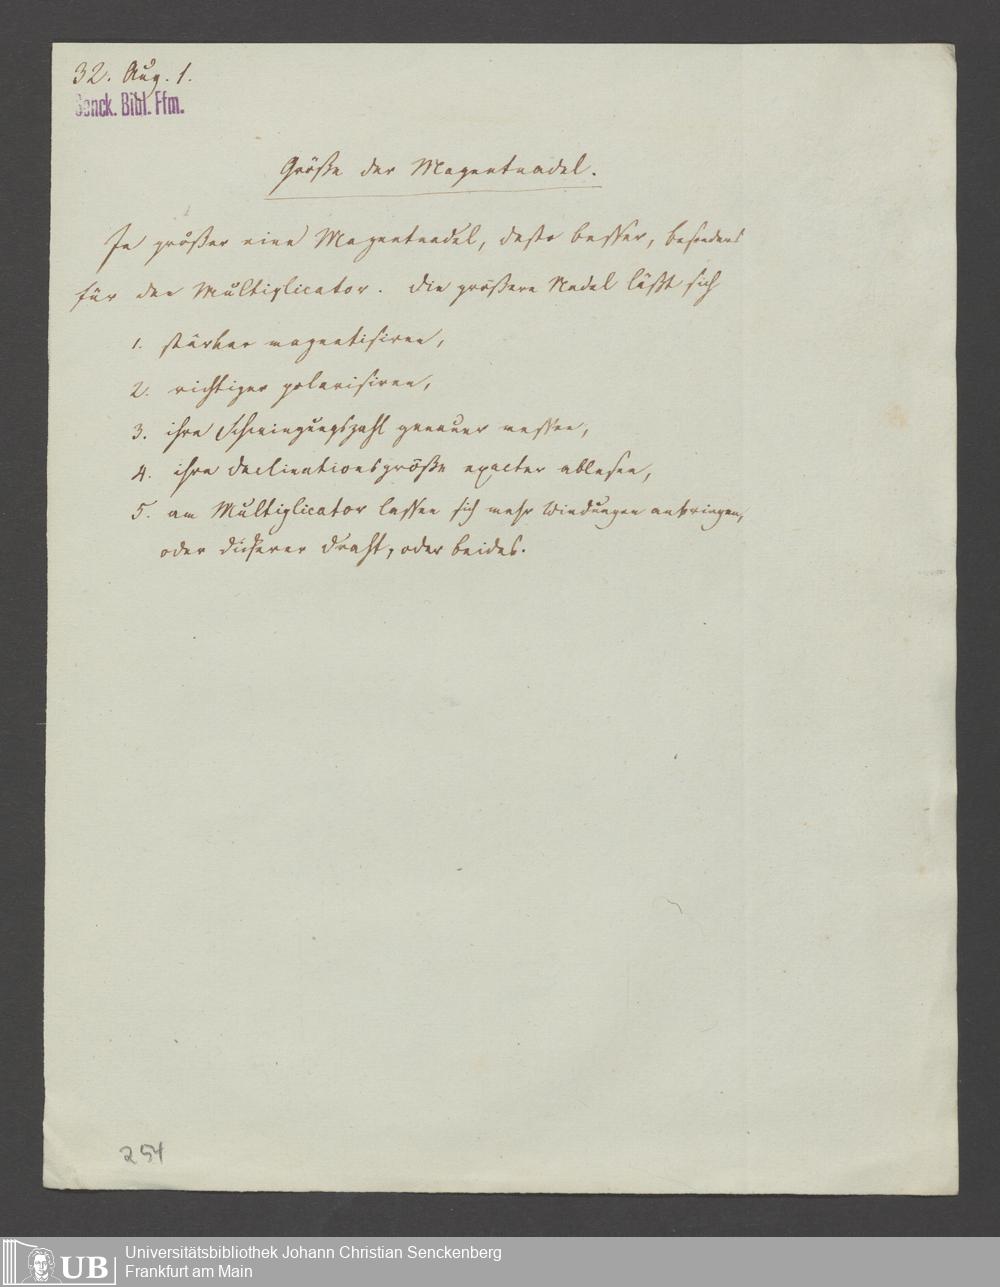 32. Aug. 1.
Senck. Bibl. Ffm.
Größe der Magnetnadel.
Je größer eine Magnetnadel, desto besser, besonders
für den Multiplicator. Die größere Nadel läßt sich
1. stärker magnetisiren,
2. richtiger polarisiren,
3. ihre Schwingungszahl genauer messen,
4. ihre Declinationsgröße exacter ablesen,
5. am Multiplicator lassen sich mehr Windungen anbringen,
oder dickerer Draht, oder beides.
254
UB
Universitätsbibliothek Johann Christian Senckenberg
Frankfurt am Main